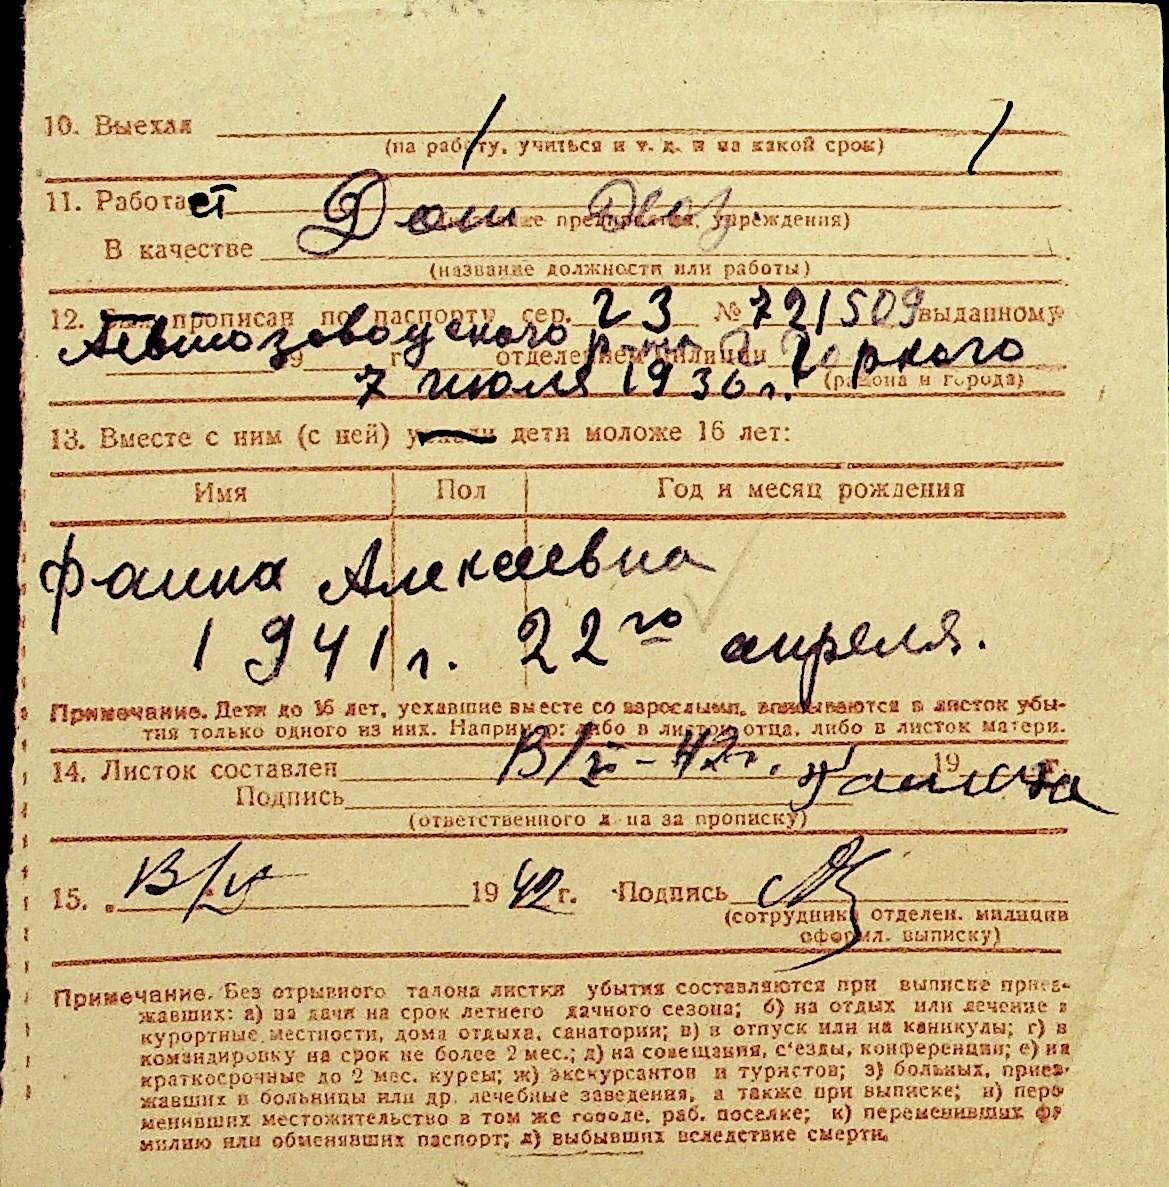 10. Выехал
(на работу, учиться и т. д. и на какой срок)
11. Работает Дом
(название предприятия, учреждения)
В качестве
(название должности или работы)
12. Был прописан по паспорту сер. 23 № 721509 выданному
Автозаводского р-на г. Горького
19 г. отделением милиции
7 июля 1936 г. (района и города)
13. Вместе с ним (с ней) уехали дети моложе 16 лет:
Имя Пол Год и месяц рождения
Фаина Алексеевна
1941 г. 22го апреля.
Примечание. Дети до 16 лет, уехавшие вместе со взрослыми, вписываются в листок убы-
тия только одного из них. Например: либо в листок отца, либо в листок матери.
14. Листок составлен 19 г.
Подпись
(ответственного д-ца за прописку)
15. 1942 г. Подпись
(сотрудник отделен. милиции
оформл. выписку)
Примечание. Без отрывного талона листки убытия составляются при выписке приез-
жавших: а) на дачи на срок летнего дачного сезона; б) на отдых или лечение в
курортные местности, дома отдыха, санатории; в) в отпуск или на каникулы; г) в
командировку на срок не более 2 мес.; д) на совещания, с'езды, конференции; е) на
краткосрочные до 2 мес. курсы; ж) экскурсантов и туристов; з) больных, приез-
жавших в больницы или др. лечебные заведения, а также при выписке; и) пере
менивших местожительство в том же городе, раб. поселке; к) переменивших фа
милию или обменявших паспорт; л) выбывших вследствие смерти.